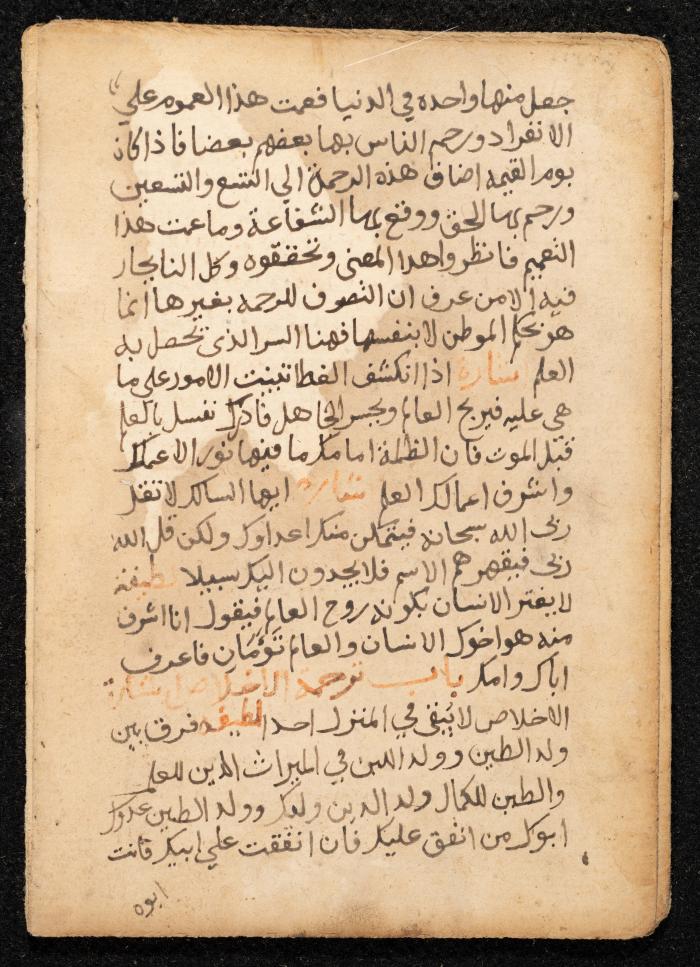 جعل منها واحده في الدنيا فعمت هذا العموم علي
الانفراد ورحم الناس بها بعضهم بعضا فاذا كان
يوم القيمه اضاف هذه الرحمة الي التسع والتسعين
ورحم بها الحق ووقع بها الشفاعة وما عمت هذا
التعميم فانظروا هذا المعنى وتحققوه وكل الناس حار
فيه الا من عرف ان التصوف للرحمه بغيرها انما
هو بحكم الموطن لا بنفسها فهنا السر الذى تحصل به
العلم اشارة اذا انكشف الغطا تبينت الامور علي ما
هي عليه فيربح العالم ويخسر الجاهل فادرك نفسك بالعلم
قبل الموت فان الظلمة امامك ما فيها نور الا عملك
واشرف اعمالك العلم اشارة ايها السالك لا تقل
ربى الله سبحانه فيتمكن منك اعداوك ولكن قل الله
ربى فيقهرهم الاسم فلا يجدون اليك سبيلا لطيفة
لا يغتر الانسان بكونه روح العالم فيقول انا اشرف
منه هو اخوك الانسان والعالم تؤمان فاعرف
اباك وامك باب ترجمة الاخلاص اشارة
الاخلاص لا يبقى في المنزل احد لطيفه فرق بين
ولد الطين وولد الدين في الميراث الدين للعلم
والطين للكمال ولد الدين ولدك وولد الطين عدوك
ابوك من انفق عليك فان انفقت علي ابيك فانت
ابوه